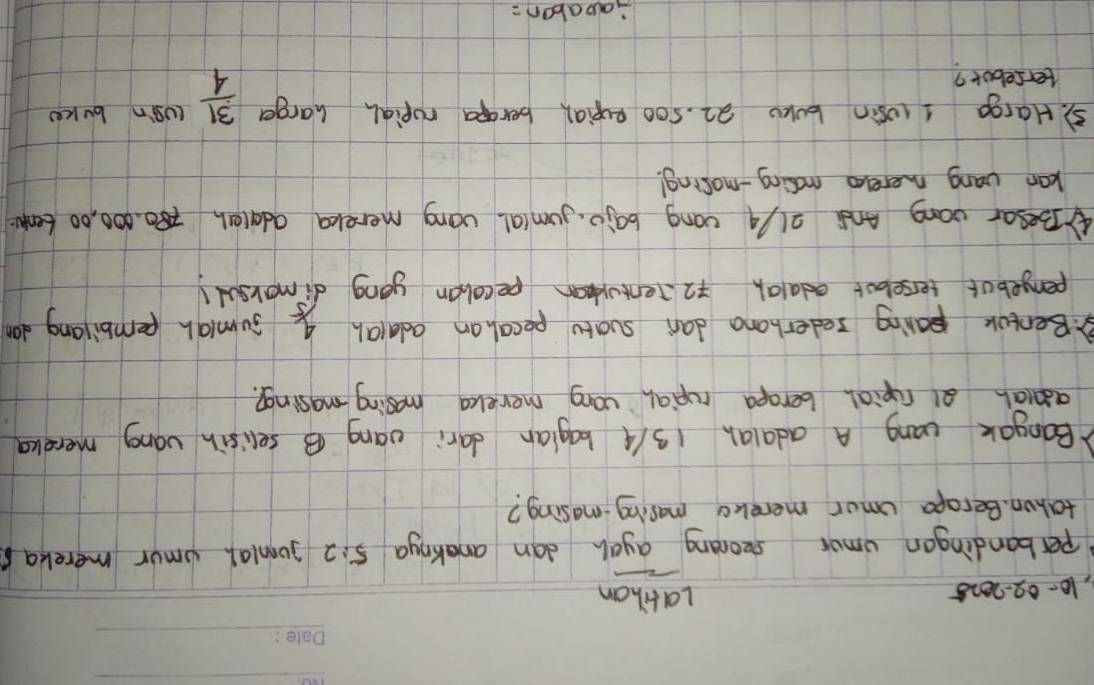 No.
Date :
10-02-2025 Latihan
Perbandingan umur seorang ayah dan anaknya 5:2 jumlah umur mereka
tahun. Berapa umur mereka masing-masing?
Banyak uang A adalah 1 3/4 bagian dari uang B selisih uang mereka
adalah 21 rupiah berapa rupiah uang mereka masing-masing?
Bentuk paling sederhana dari suatu pecahan adalah 4/5 jumlah pembilang dan
penyebut tersebut adalah 72. Tentukan pecahan yang di maksud!
4). Besar uang Andi 21/4 uang bajo. jumlah uang mereka adalah 780.000,00 tentu-
kan uang mereka masing-masing!
5). Harga 1 lusin buku 22.500 Rupiah, berapa rupiah harga 31/4 lusin buku
tersebut?
jawaban =